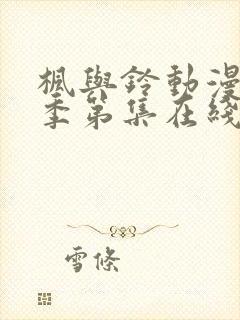 楓與鈴動漫
季第集在綫
雪條